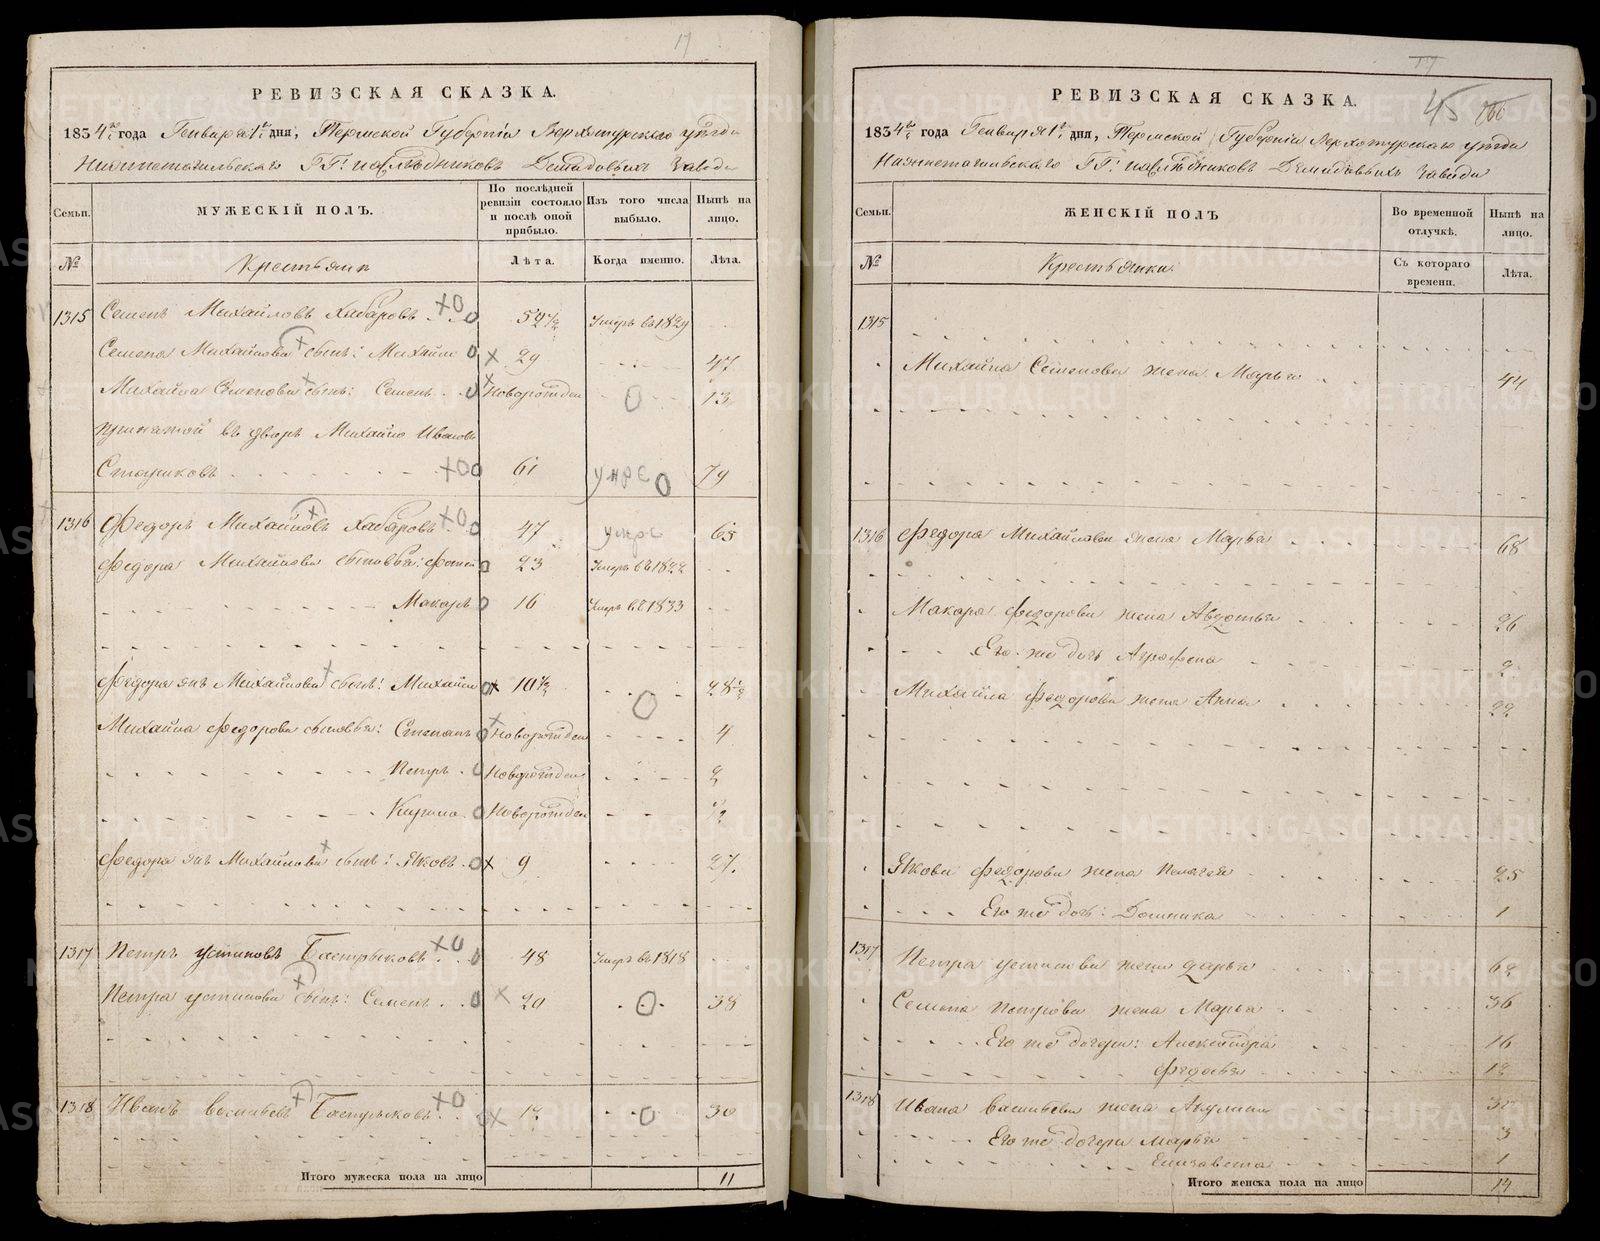 17
РЕВИЗСКАЯ СКАЗКА.
1834го года Генваря 1го дня, Пермской Губернiи Верхотурскаго уѣзда
Нижнетагильскаго ГГ: наслѣдниковъ Демидовыхъ завода
Семьи.
МУЖЕСКIЙ ПОЛЪ.
По послѣдней ревизiи состояло и послѣ оной прибыло.
Изъ того числа выбыло.
Нынѣ на лицо.
№
Крестьяне
Лѣта.
Когда именно.
Лѣта.
1315 Семенъ Михайловъ Хабаровъ 59½ Умеръ въ 1829
Семена Михайлова сынъ: Михайло 29 47
Михайла Семенова сынъ: Семенъ Новорожден 13
принятой въ дворъ Михайло Ивановъ
Стариковъ 61 умре 79
1316 Федоръ Михайловъ Хабаровъ 47 умре 65
Федора Михайлова сыновья: Фотей 23 Умеръ въ 1822
Макаръ 16 Умеръ въ 1833
Федора жъ Михайлова сынъ: Михайло 10½ 28½
Михайла Федорова сыновья: Степанъ Новорожден 4
Петръ Новорожден 2
Кирило Новорожден ½
Федора жъ Михайлова сынъ: Яковъ 9 27
1317 Петръ Устиновъ Бастрыковъ 48 Умеръ въ 1818
Петра Устинова сынъ: Семенъ 20 38
1318 Иванъ Васильевъ Бастрыковъ 12 30
Итого мужеска пола на лицо 11
45
РЕВИЗСКАЯ СКАЗКА.
1834го года Генваря 1го дня, Пермской Губернiи Верхотурскаго уѣзда
Нижнетагильскаго ГГ: наслѣдниковъ Демидовыхъ завода
Семьи.
ЖЕНСКIЙ ПОЛЪ
Во временной отлучкѣ.
Нынѣ на лицо.
№
Крестьянки
Съ котораго времени.
Лѣта.
1315
Михайла Семенова жена Марья 44
1316 Федора Михайлова жена Марья 68
Макара Федорова жена Авдотья 26
Его же дочь Аграфена 2
Михайла Федорова жена Анна 22
Якова Федорова жена Пелагея 25
Его же дочь: Домника 1
1317 Петра Устинова жена Дарья 62
Семена Петрова жена Марья 36
Его же дочери: Александра 16
Федосья 12
1318 Ивана Васильева жена Акулина 30
Его же дочери Марья 3
Елизавета 1
Итого женска пола на лицо 14
METRIKI.GASO-URAL.RU